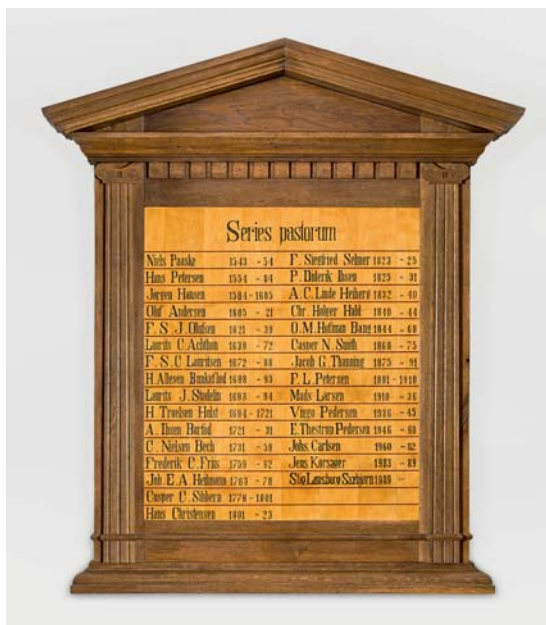 Series pastorum
Niels Paaske 1543 - 54
Hans Petersen 1554 - 84
Jørgen Hansen 1584 - 1605
Oluf Andersen 1605 - 21
F. S. J. Olufsen 1621 - 39
Laurits C. Achthon 1639 - 72
F. S. C Lauritsen 1672 - 88
H. Allesen 1688 - 93
Laurits J. 1693 - 94
H Troelsen Holst 1694 - 1721
A. Ibsen 1721 - 31
C. Nielsen Bech 1731 - 59
Frederik C. Friis 1759 - 62
Joh. E. A. Heilmann 1763 - 78
Casper C. Sibbern 1778 - 1801
Hans Christensen 1801 - 23
F. Siegfried Selmer 1823 - 25
P. Diderik Ibsen 1825 - 31
A. C. Linde Heiberg 1832 - 40
Chr. Holger Hald 1840 - 44
O. M. Hofman Bang 1844 - 60
Casper N. Smith 1860 - 75
Jacob G. Thanning 1875 - 91
F. L. Petersen 1891 - 1910
Mads Larsen 1910 - 36
Viggo Pedersen 1936 - 45
E. Thestrup Pedersen 1946 - 60
Johs. Carlsen 1960 - 82
Jens Korsager 1983 - 89
Stig 1989 -